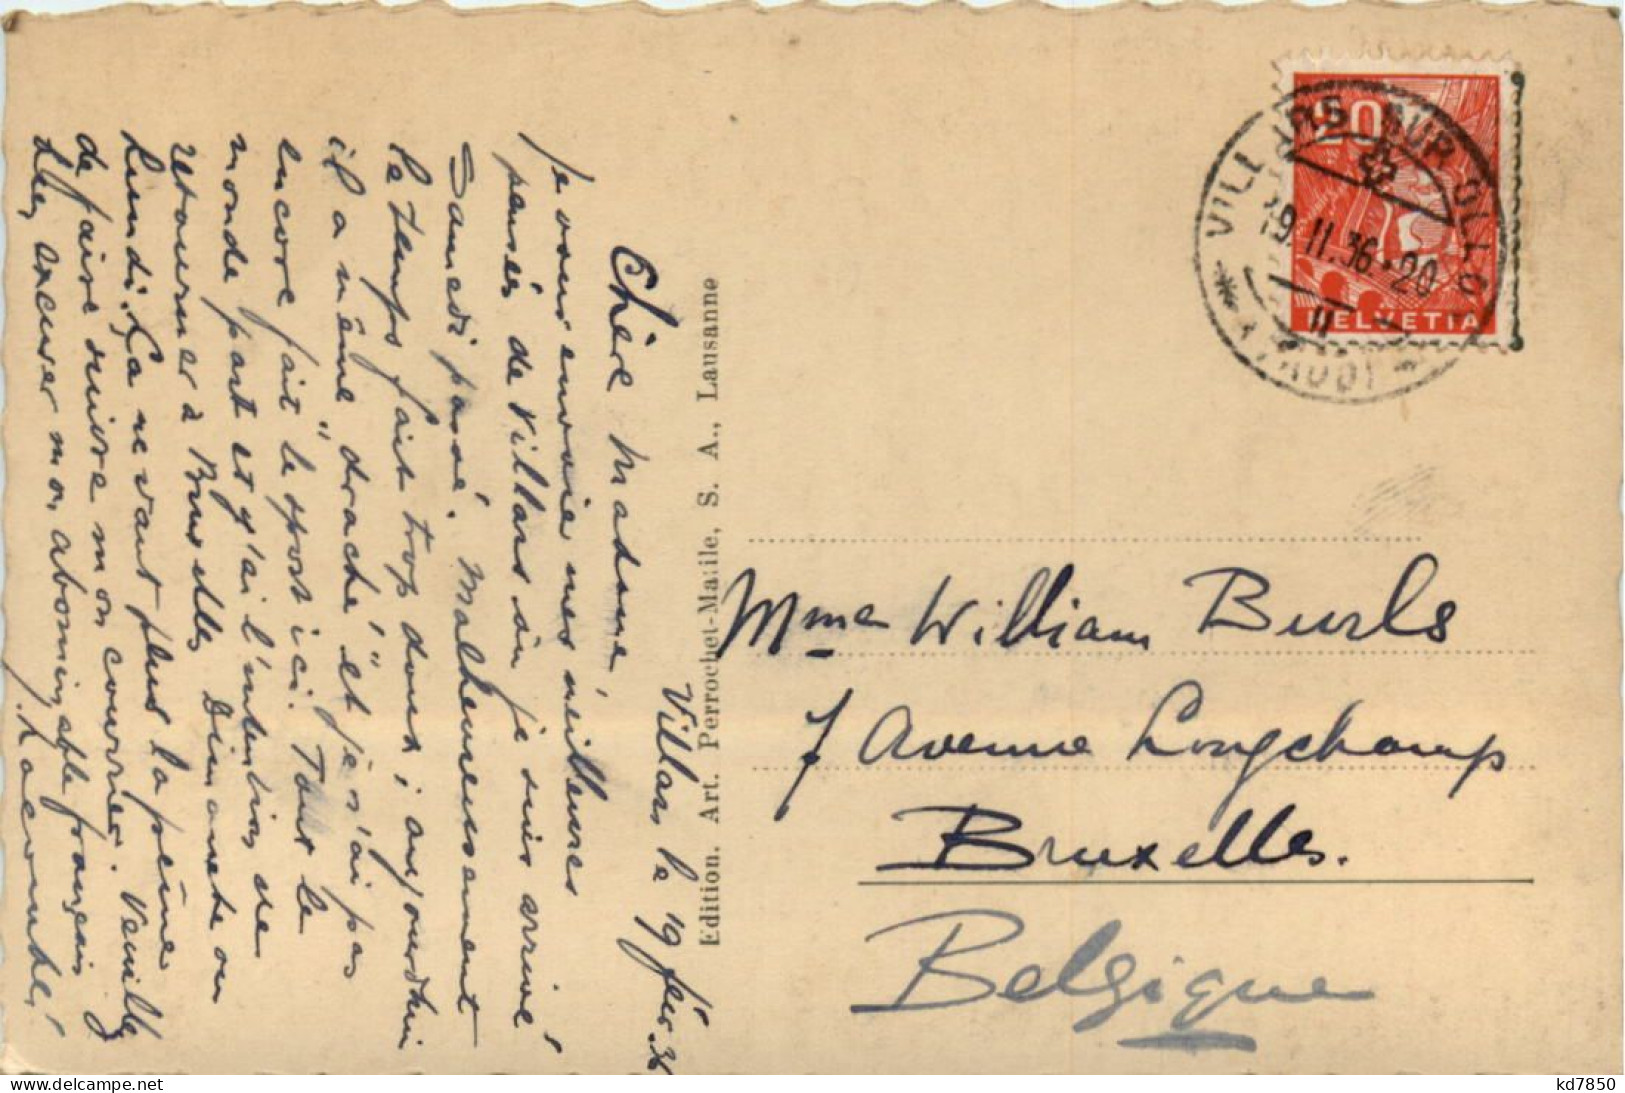 Villars le 19 févr. 36
Chère Madame,
Je vous envoie mes meilleures
pensées de Villars où je suis arrivé
Samedi passé. Malheureusement
le temps fait trop doux; aujourd'hui
il a même "draché" et je n'ai pas
encore fait le sport ici. Tout le
monde part et j'ai l'intention de
retourner à Bruxelles Dimanche ou
Lundi. Ça ne vaut plus la peine
de faire suivre mon courrier. Veuillez
excuser mon abominable français
Edition. Art. Perrochet-Matile, S. A., Lausanne
VILLARS SUR OLLON
19.II.36-20
(VAUD)
20
HELVETIA
Mme William Burls
7 Avenue Longchamp
Bruxelles.
Belgique
kd7850